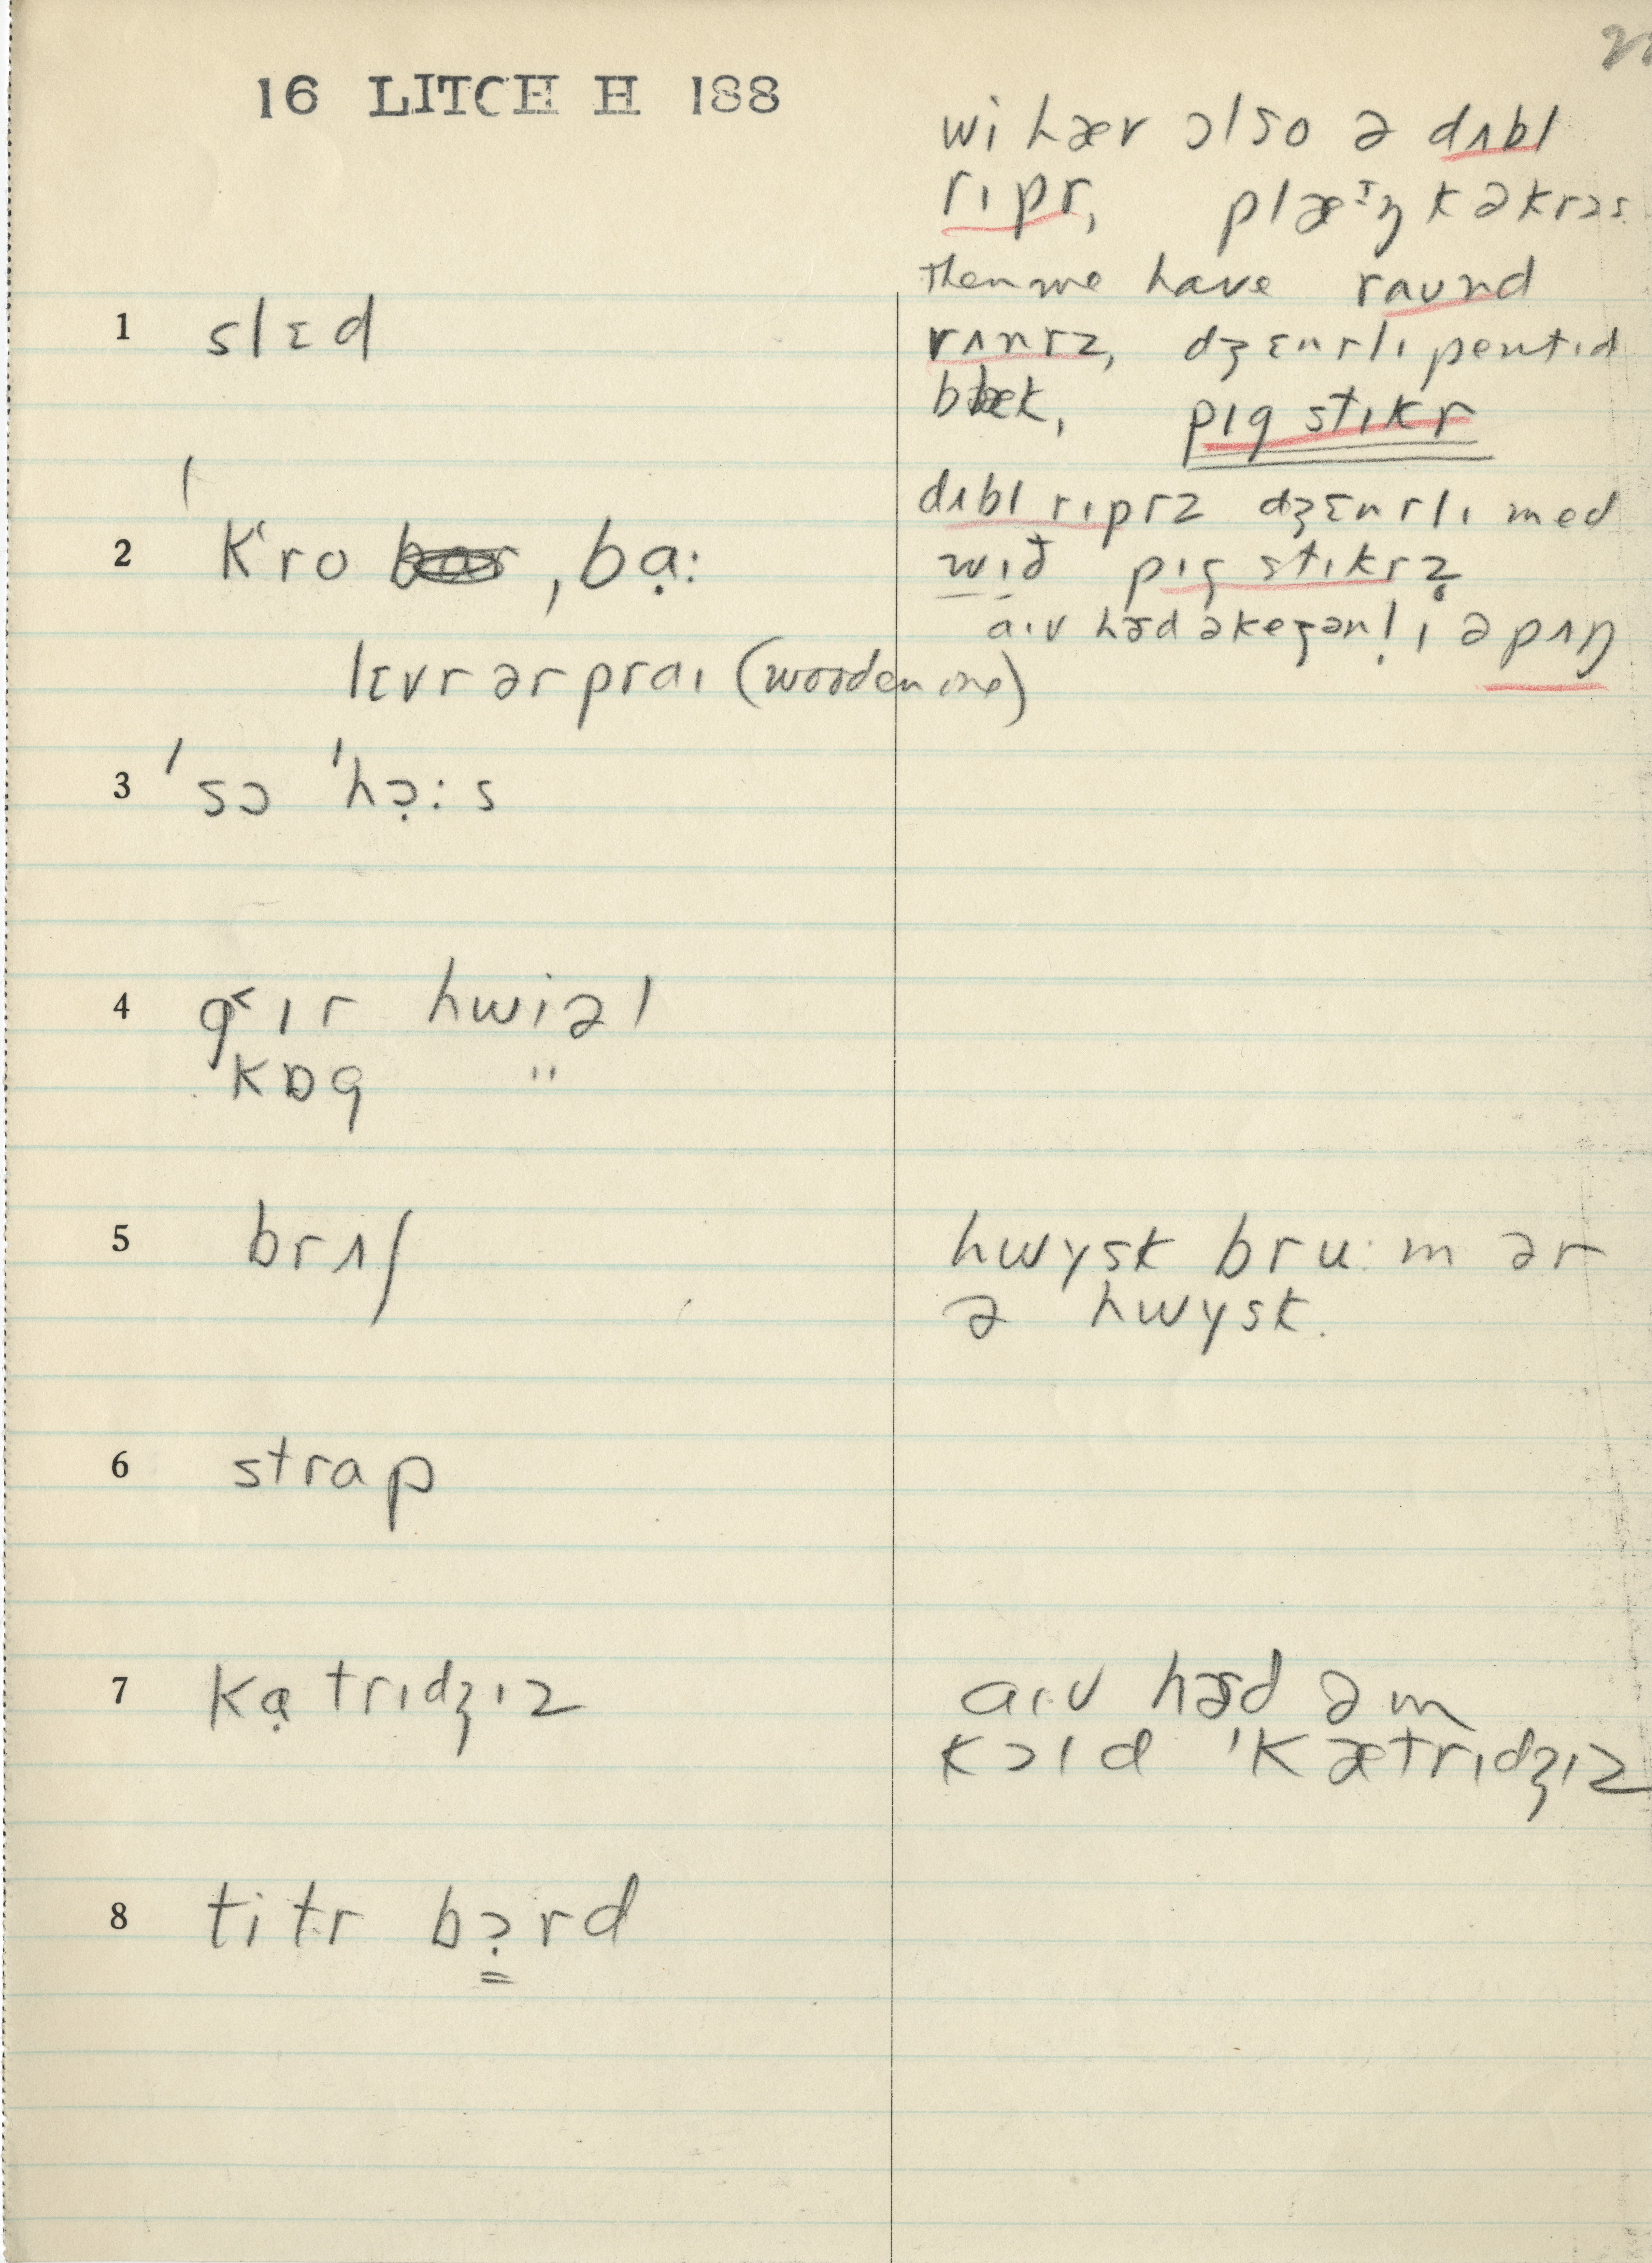 16 LITCH H 188
1 slɛd
2 ˈk˂ro ˌbạ:
lɛvr ər praɪ (wooden one)
3 ˈsɔ ˈhɔ̣:s
4 g˂ɪr hwiəl
kɒg "
5 brʌʃ
6 strap
7 kạtrɪdʒɪz
8 titr bɔ̣rd
wi hæv ɔlso ə dʌbl
rɪpr,
then we have raund
rʌnrz, dʒɛnrlɪ pentɪd
bæk, pɪg stɪkr
dʌbl rɪprz dʒɛnrlɪ med
wɪð pɪg stɪkrz̥
aɪv hɚd əkeʒənl̩ɪ ə pʌŋ
hwʏsk bru:m ər
ə hwʏsk.
aɪv hɚd əm
kɔld ˈkætrɪdʒɪz